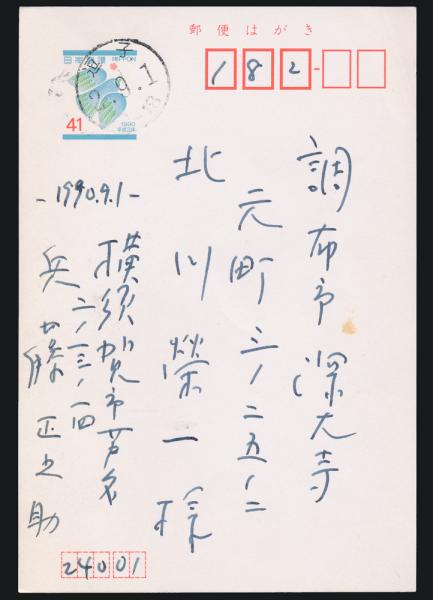 郵便はがき
182
日本郵便 NIPPON
41
1990
平成2年
逗子
2.9.1
18
調布市深大寺
元町三ノ二五ノ二
北川榮一様
-1990.9.1-
横須賀市芦名
二ノ三ノ一四
兵藤正之助
24001